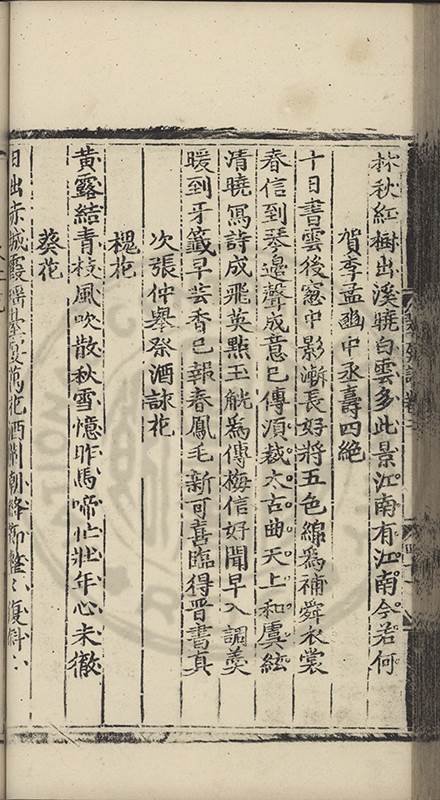 林秋紅樹出溪曉白雲多此景江南有江南今若何
賀季孟幽中丞壽四絕
十日書雲後窓中影漸長好將五色線爲補舜衣裳
春信到琴邊聲成意已傳須裁太古曲天上和虞絃
清曉寫詩成飛英點玉觥爲傳梅信好聞早入調羹
暖到牙籤早芸香已報春鳳毛新可喜臨得晉書真
次張仲舉祭酒詠花
槐花
黃露結青枝風吹散秋雪憶昨馬啼忙壯年心未徹
葵花
日出赤城霞